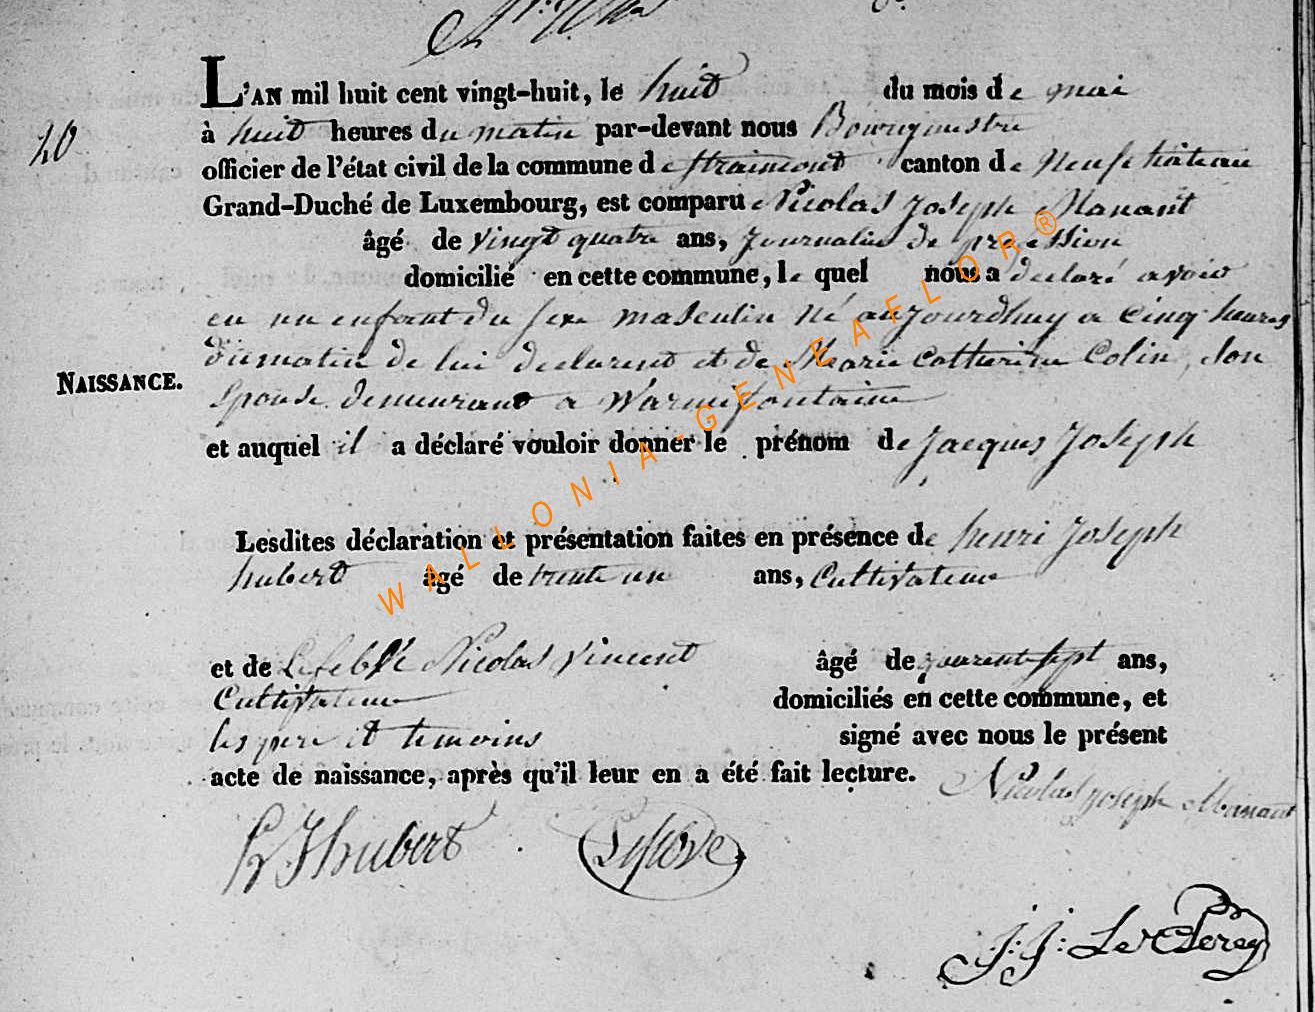 L'AN mil huit cent vingt-huit, le huit du mois de mai
20
à huit heures du matin par-devant nous Bourgmestre
officier de l'état civil de la commune de Straimont canton de Neufchâteau
Grand-Duché de Luxembourg, est comparu Nicolas Joseph Manant
âgé de vingt quatre ans, Journalier de profession
domicilié en cette commune, le quel nous a declaré avoir
eu un enfant du sexe masculin né aujourdhuy a cinq heures
du matin de lui declarent et de Marie Catherine Colin, son
Epouse demeurant a Warmifontaine
NAISSANCE.
et auquel il a déclaré vouloir donner le prénom de Jacques Joseph
Lesdites déclaration et présentation faites en présence de henri Joseph
hubert âgé de trente un ans, Cultivateur
et de Nicolas Vincent âgé de quarent sept ans,
Cultivateur domiciliés en cette commune, et
les pere et temoins signé avec nous le présent
acte de naissance, après qu'il leur en a été fait lecture.
Nicolas joseph Manant
hubert
J: J: Le Clerey
WALLONIA-GENEAFLOR®